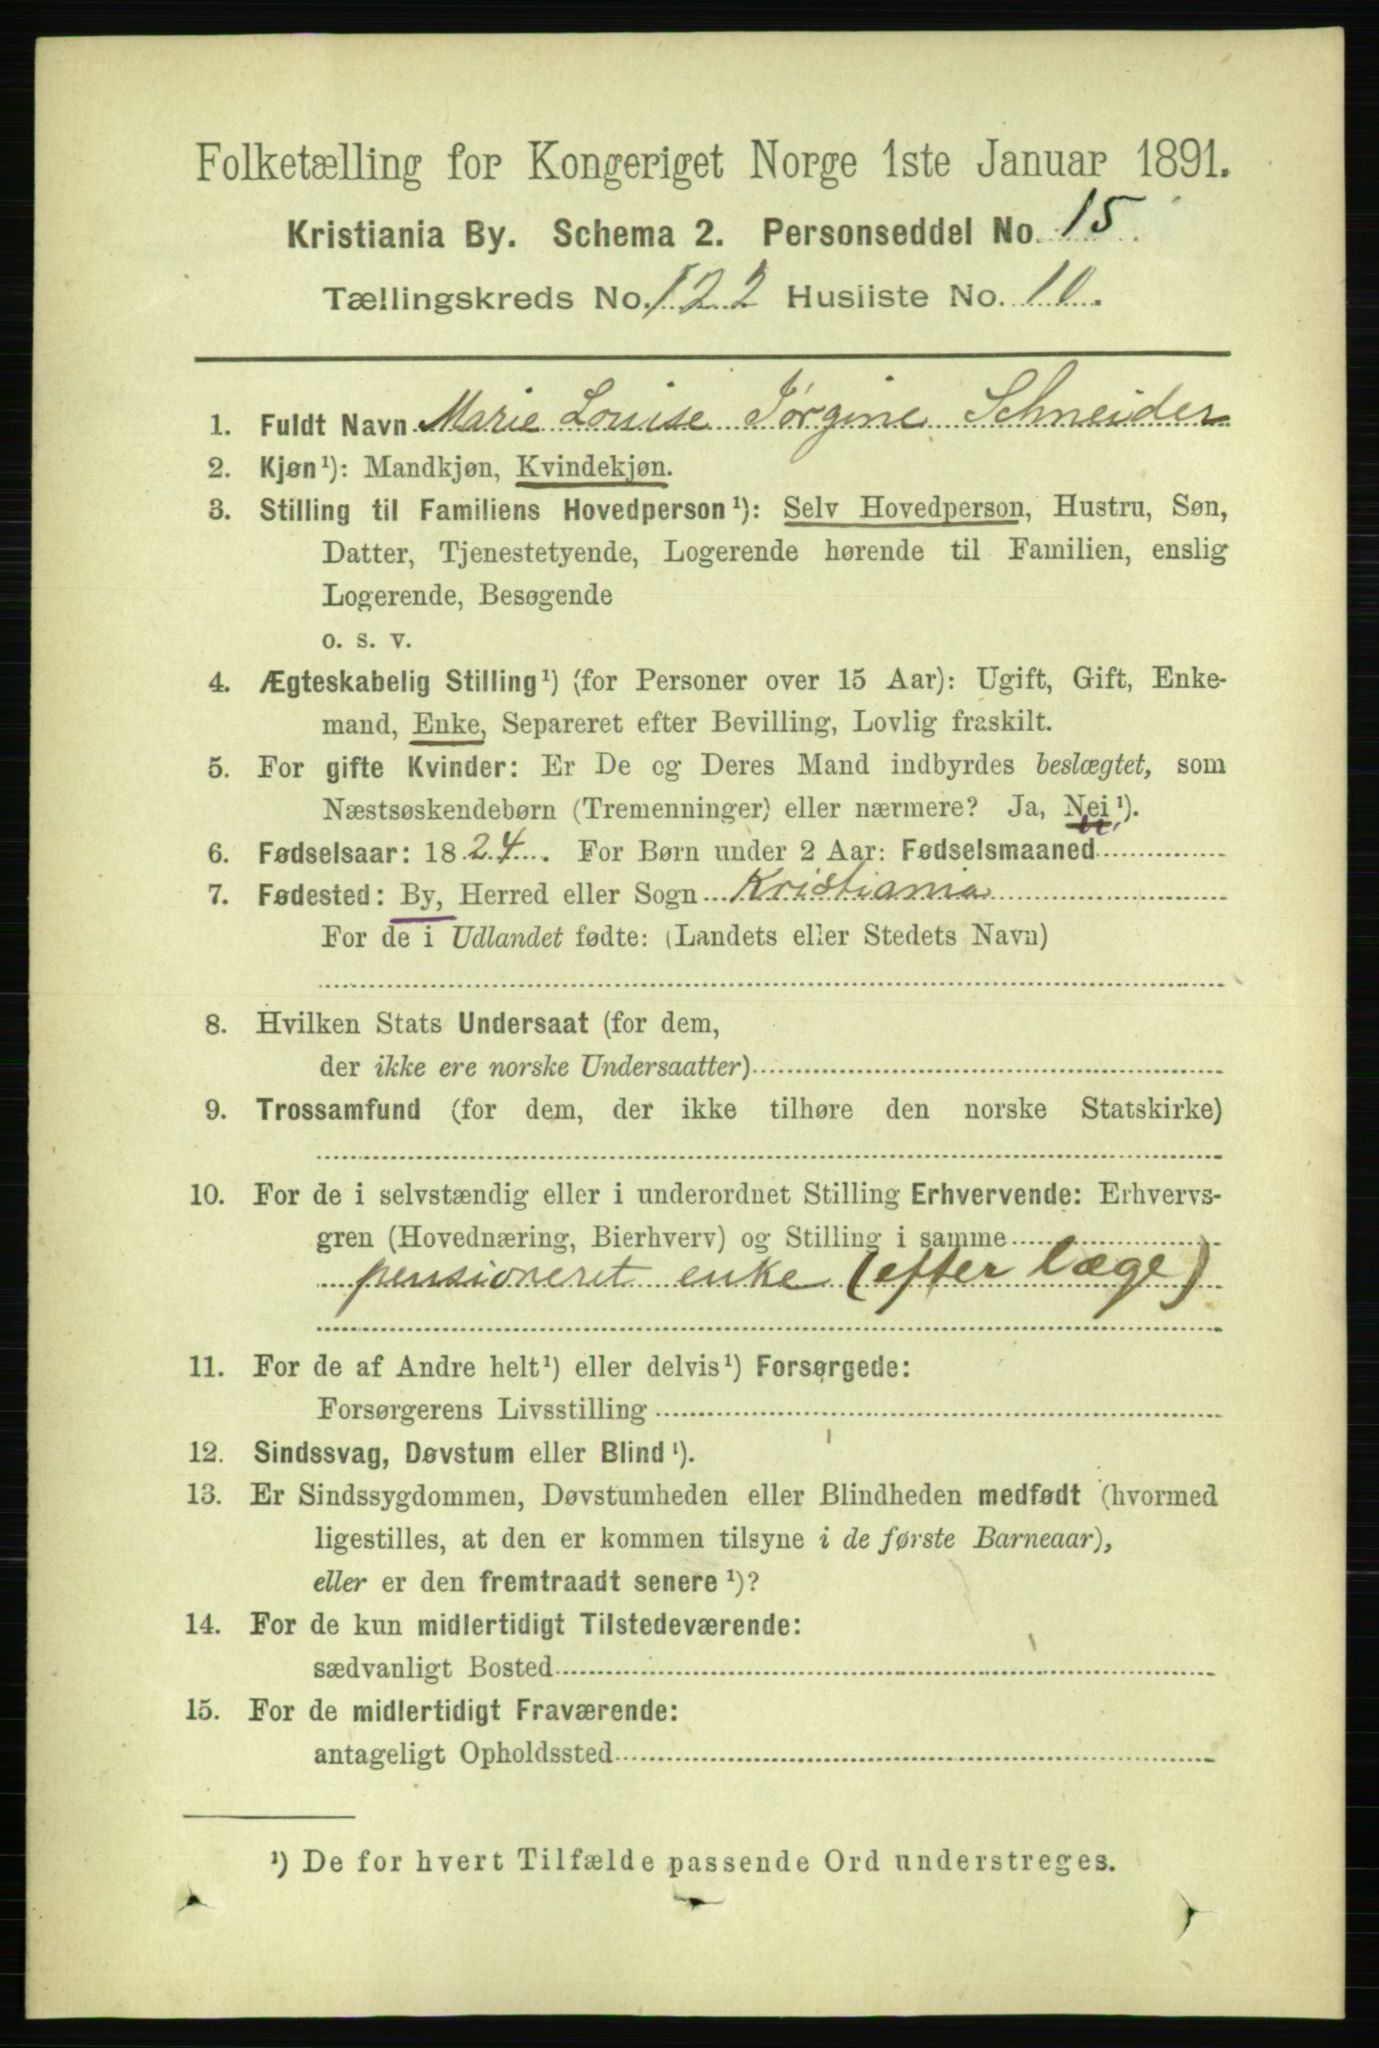 Folketælling for Kongeriget Norge 1ste Januar 1891.
Kristiania By. Schema 2. Personseddel No. 15.
Tællingskreds No. 122 Husliste No. 10.
1. Fuldt Navn Marie Louise Jørgine Schneider
2. Kjøn¹): Mandkjøn, Kvindekjøn.
3. Stilling til Familiens Hovedperson¹): Selv Hovedperson, Hustru, Søn,
Datter, Tjenestetyende, Logerende hørende til Familien, enslig
Logerende, Besøgende
o. s. v.
4. Ægteskabelig Stilling¹) (for Personer over 15 Aar): Ugift, Gift, Enke-
mand, Enke, Separeret efter Bevilling, Lovlig fraskilt.
5. For gifte Kvinder: Er De og Deres Mand indbyrdes beslægtet, som
Næstsøskendebørn (Tremenninger) eller nærmere? Ja, Nei¹).
6. Fødselsaar: 1824. For Børn under 2 Aar: Fødselsmaaned
7. Fødested: By, Herred eller Sogn Kristiania
For de i Udlandet fødte: (Landets eller Stedets Navn)
8. Hvilken Stats Undersaat (for dem,
der ikke ere norske Undersaatter)
9. Trossamfund (for dem, der ikke tilhøre den norske Statskirke)
10. For de i selvstændig eller i underordnet Stilling Erhvervende: Erhvervs-
gren (Hovednæring, Bierhverv) og Stilling i samme
pensioneret enke (efter læge)
11. For de af Andre helt¹) eller delvis¹) Forsørgede:
Forsørgerens Livsstilling
12. Sindssvag, Døvstum eller Blind¹).
13. Er Sindssygdommen, Døvstumheden eller Blindheden medfødt (hvormed
ligestilles, at den er kommen tilsyne i de første Barneaar),
eller er den fremtraadt senere¹)?
14. For de kun midlertidigt Tilstedeværende:
sædvanligt Bosted
15. For de midlertidigt Fraværende:
antageligt Opholdssted
¹) De for hvert Tilfælde passende Ord understreges.